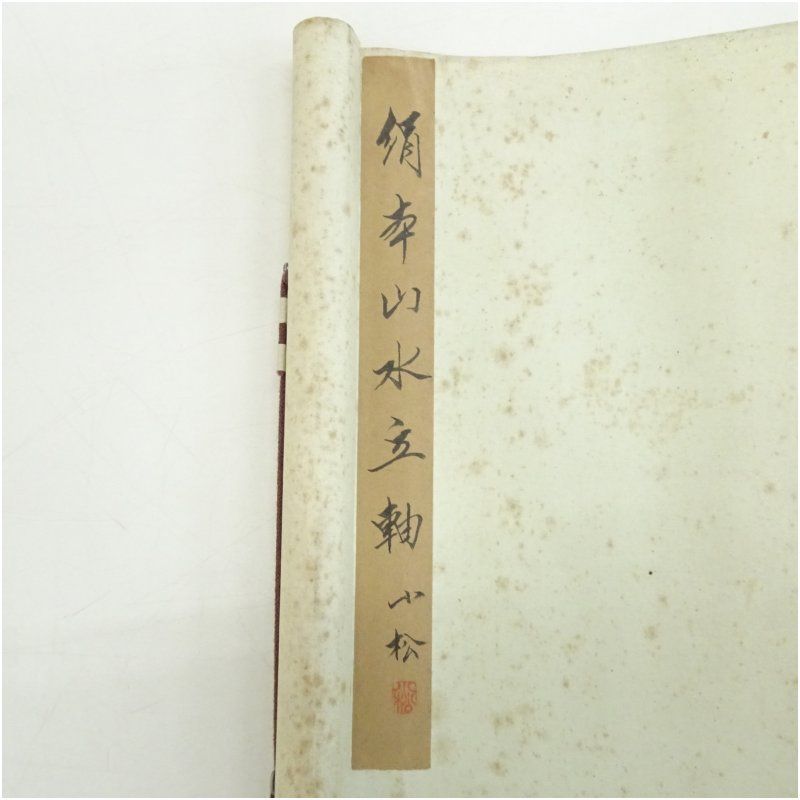 絹本山水立軸
小松
小松